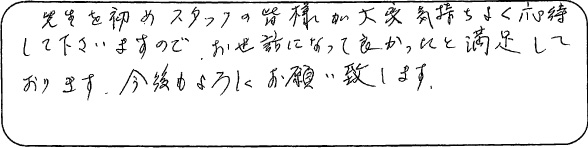 先生を初めスタッフの皆様が大変気持ちよく応待
して下さいますので、お世話になって良かったと満足して
おります。今後もよろしくお願い致します。